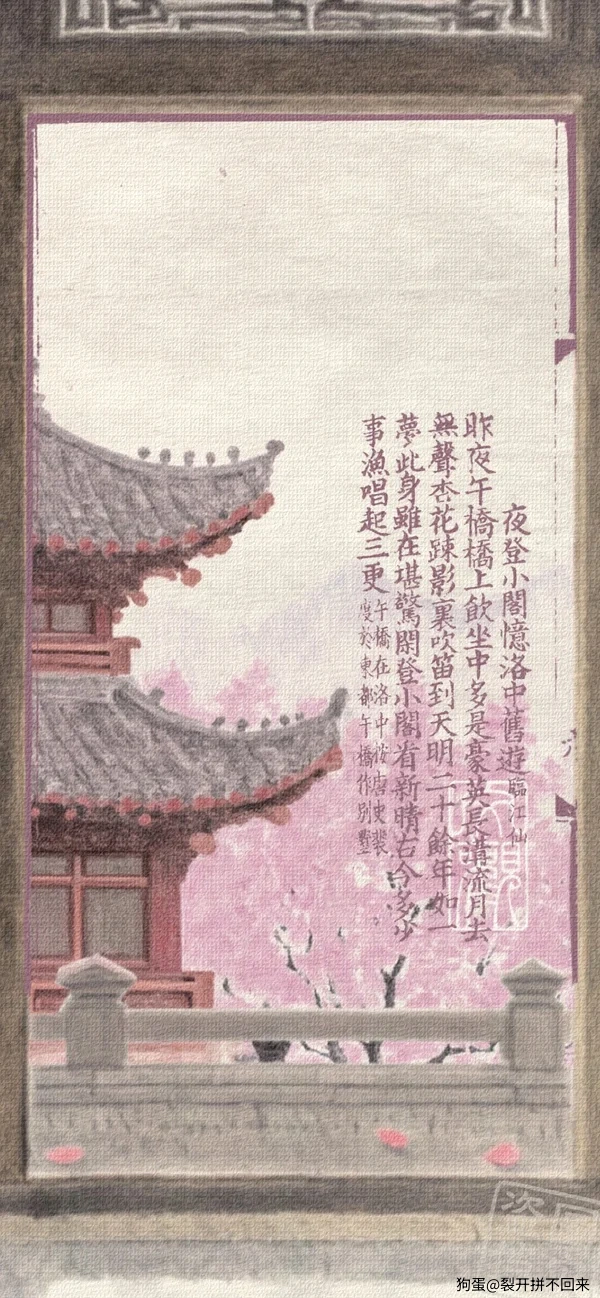 夜登小閣憶洛中舊遊臨江仙
昨夜午橋橋上飲坐中多是豪英長溝流月去
無聲杏花疎影裏吹笛到天明二十餘年如一
夢此身雖在堪驚閑登小閣看新晴古今多少
事漁唱起三更
午橋在洛中按唐史裴
度於東都午橋作別墅
狗蛋@裂开拼不回来